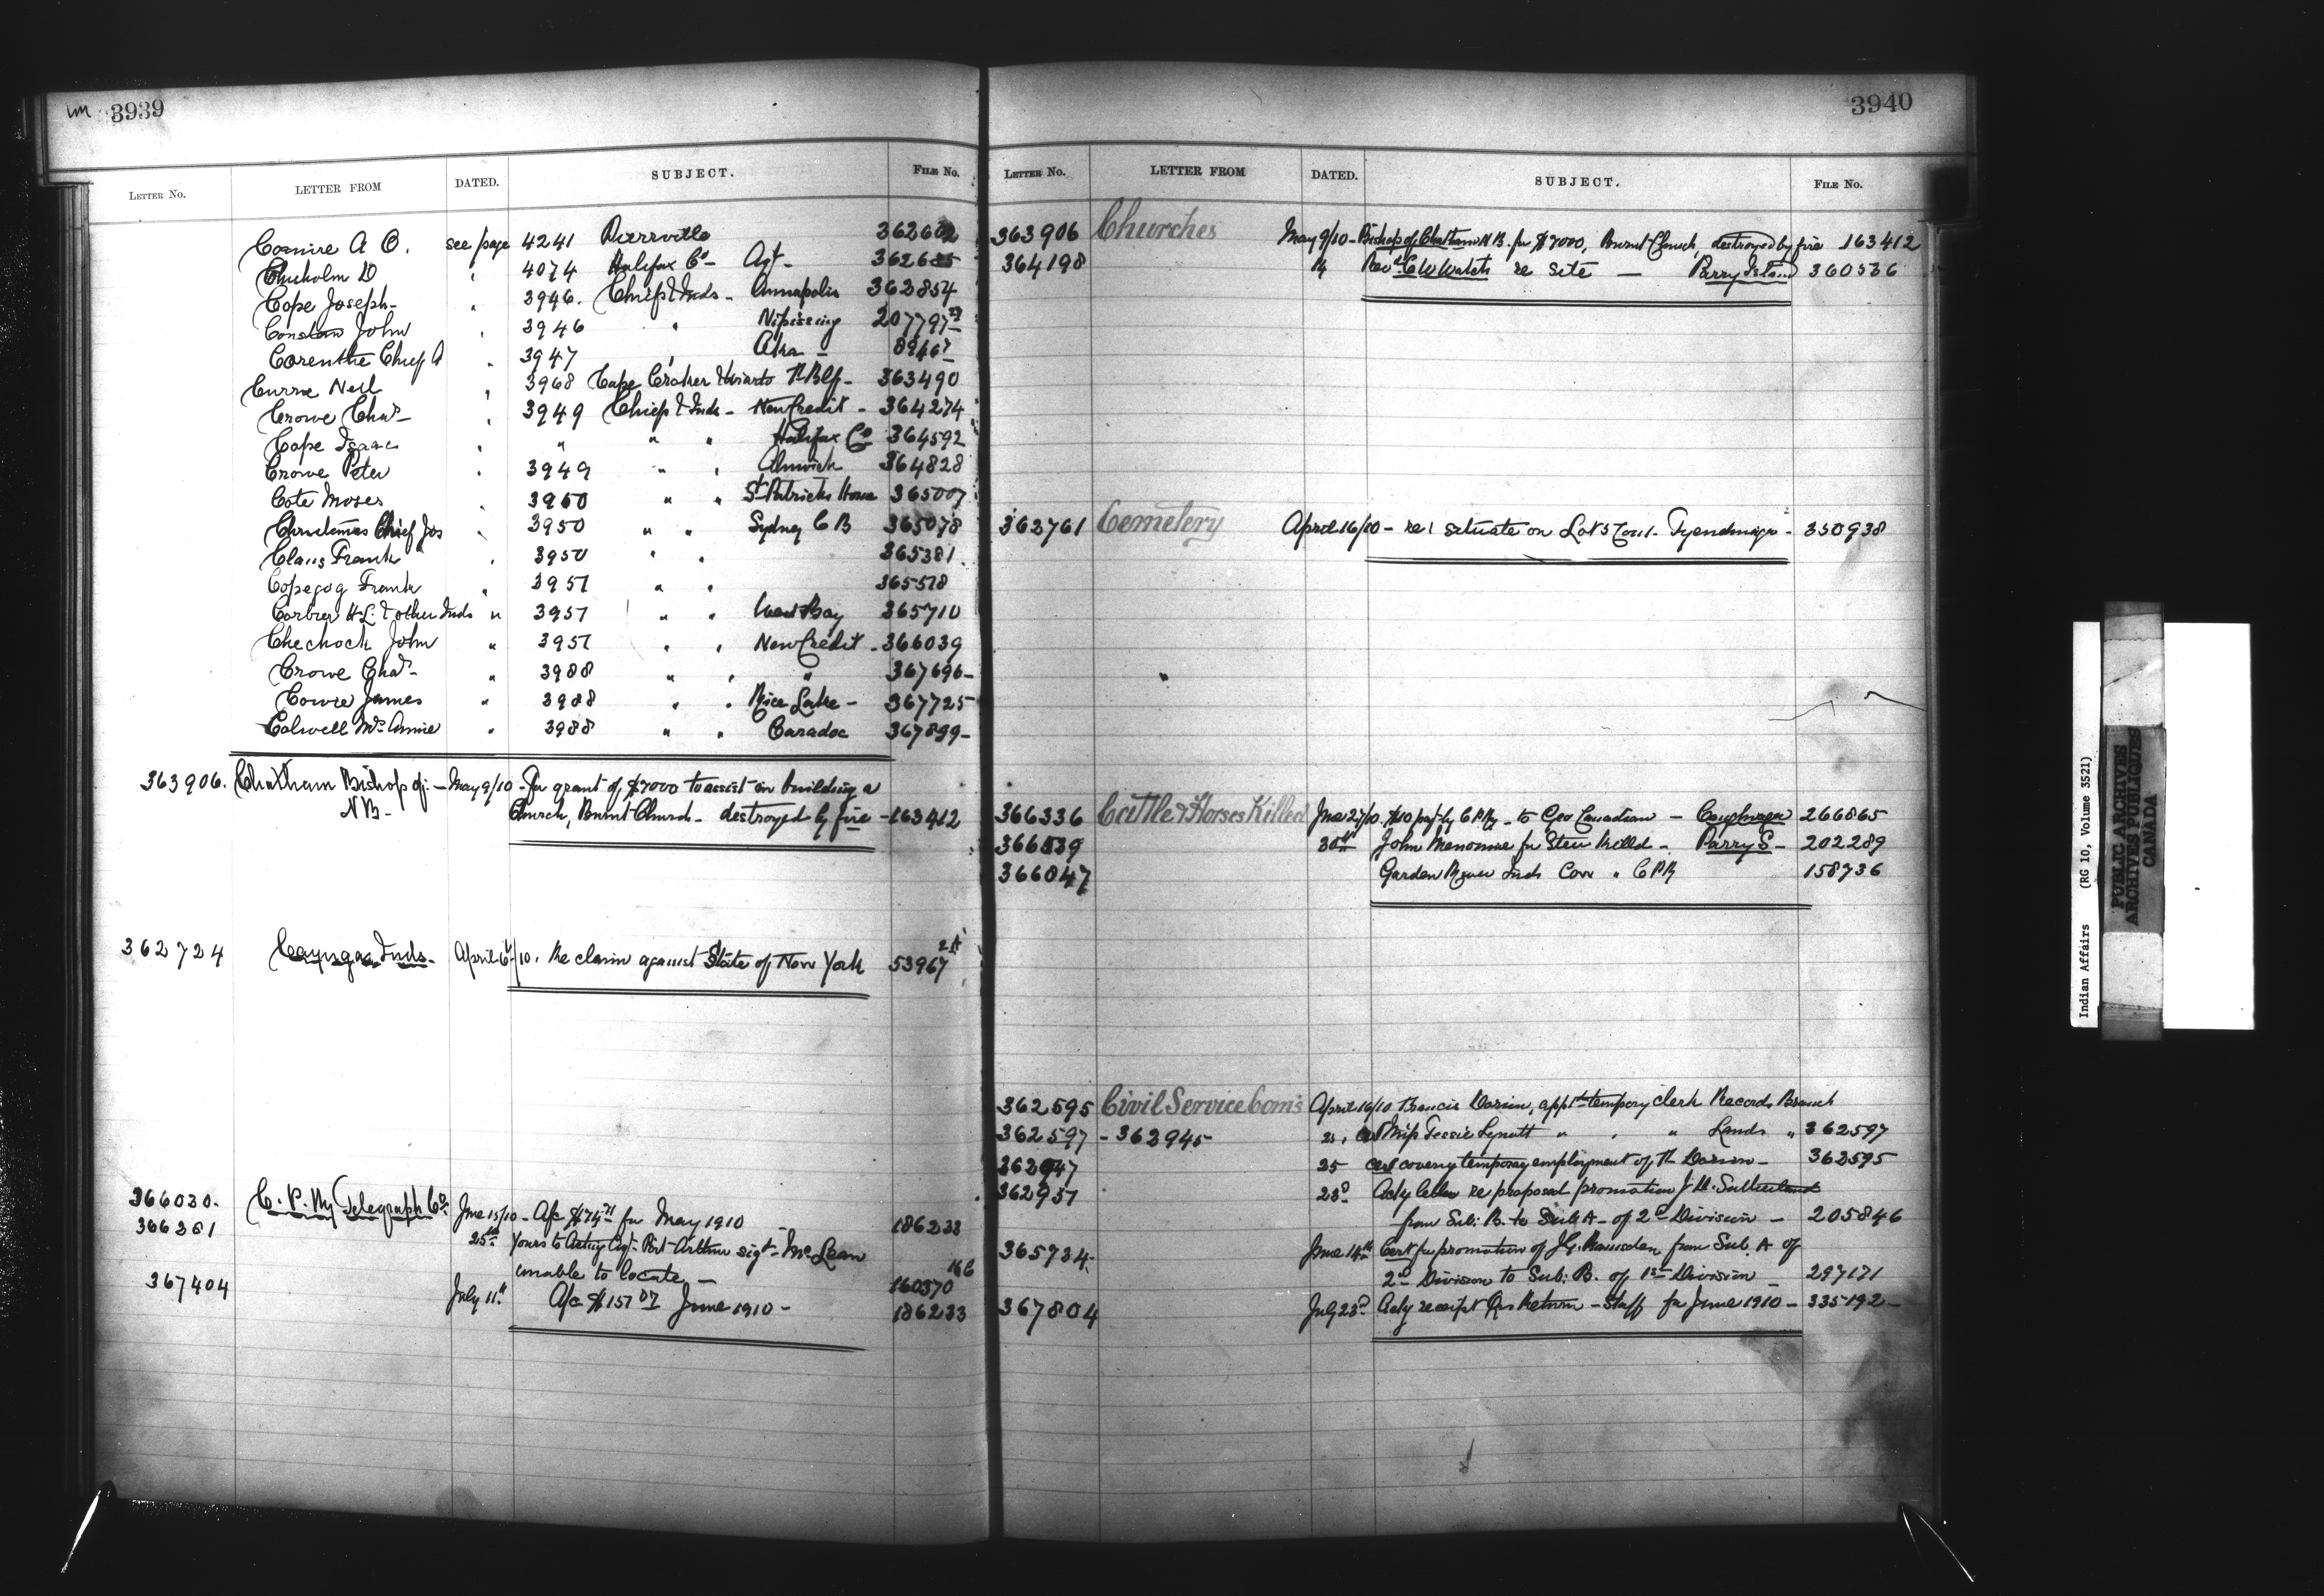 3939
LETTER No. LETTER FROM DATED. SUBJECT. FILE No.
Comire A O. see page 4241 Pierrville 362602
Chisholm D " 4074 Halifax Co - Agt - 362685
Cope Joseph - " 3946. Chief & Inds - Annapolis 362854
John " 3946 " Nipissing 207797
Corenthe Chief A " 3947 " Oka - 8946
Currie Neil " 3968 Cape Croker & Wiarton 363490
Crowe Chas - " 3949 Chief & Inds - New Credit - 364274
Cope Isaac " " " " Halifax Co 364592
Crowe Peter " 3949 " " Alnwick 364828
Cote Moses " 3950 " " St Patricks Home 365007
Christmas Chief Jos " 3950 " " Sydney C B 365078
Claus Frank " 3950 " " 365381.
Copegog Frank " 3951 " " 365518
Corbier H L. & other Inds " 3951 " " West Bay 365710
Chechock John " 3951 " " New Credit - 366039
Crowe Chas - " 3988 " " " 367696-
Cowie James " 3988 " " Rice Lake - 367725
Colwell Mrs Annie " 3988 " " Caradoc 367899-
363906. Chatham Bishop of: - May 9/10 - For grant of $7000 to assist in building a
NB - Church, Burnt Church - destroyed by fire - 163412
362724 Cayuga Inds. April 6/10. Re claim against State of New York 53967 2A
366030. C. P. Ry Telegraph Co. June 15/10 - A/c $74.71 for May 1910 - 186233
366361 25th Yours to Acting Agt - Port Arthur sigt - McLean
unable to locate - 160370
367404 July 11th A/c $157 07 June 1910 - 186233
3940
LETTER No. LETTER FROM DATED. SUBJECT. FILE No.
363906 Churches May 9/10 - Bishop of Chatham N B. for $7000, Burnt Church, destroyed by fire 163412
364198 14 Revd C W Watch re site - Parry Island 360536
362761 Cemetery April 16/10 - re: situate on Lot 5 Con 1 - Tyendinaga - 350938
366336 Cattle & Horses Killed June 27/10. $10 pay't by C P Ry - to Geo Canadian - Caughnaga 266865
366539 30th John Menominee for Steer killed - Parry S - 202289
366047 Garden River Inds Cow " C P R 158736
362595 Civil Service Coms April 16/10 Francis Dorion, app't tempory clerk Records Branch
362597 - 362945 - 21, Cert Miss Tessie Lynott " " " Lands " 362597
362947 25 Cert covering temporay employment of Dorion - 362595
362951 23d Ackg letter re proposal promotion J. D. Sutherland
from Sub: B. to Sub A - of 2d Division - 205846
365734. June 14th Cert for promotion of J G. Ramsden from Sub. A of
2d Division to Sub: B. of 1st Division - 297171
367804 July 23d Ackg receipt Qrs Return - Staff for June 1910 - 335192 -
Indian Affairs (RG 10, Volume 3521)
PUBLIC ARCHIVES
ARCHIVES PUBLIQUES
CANADA